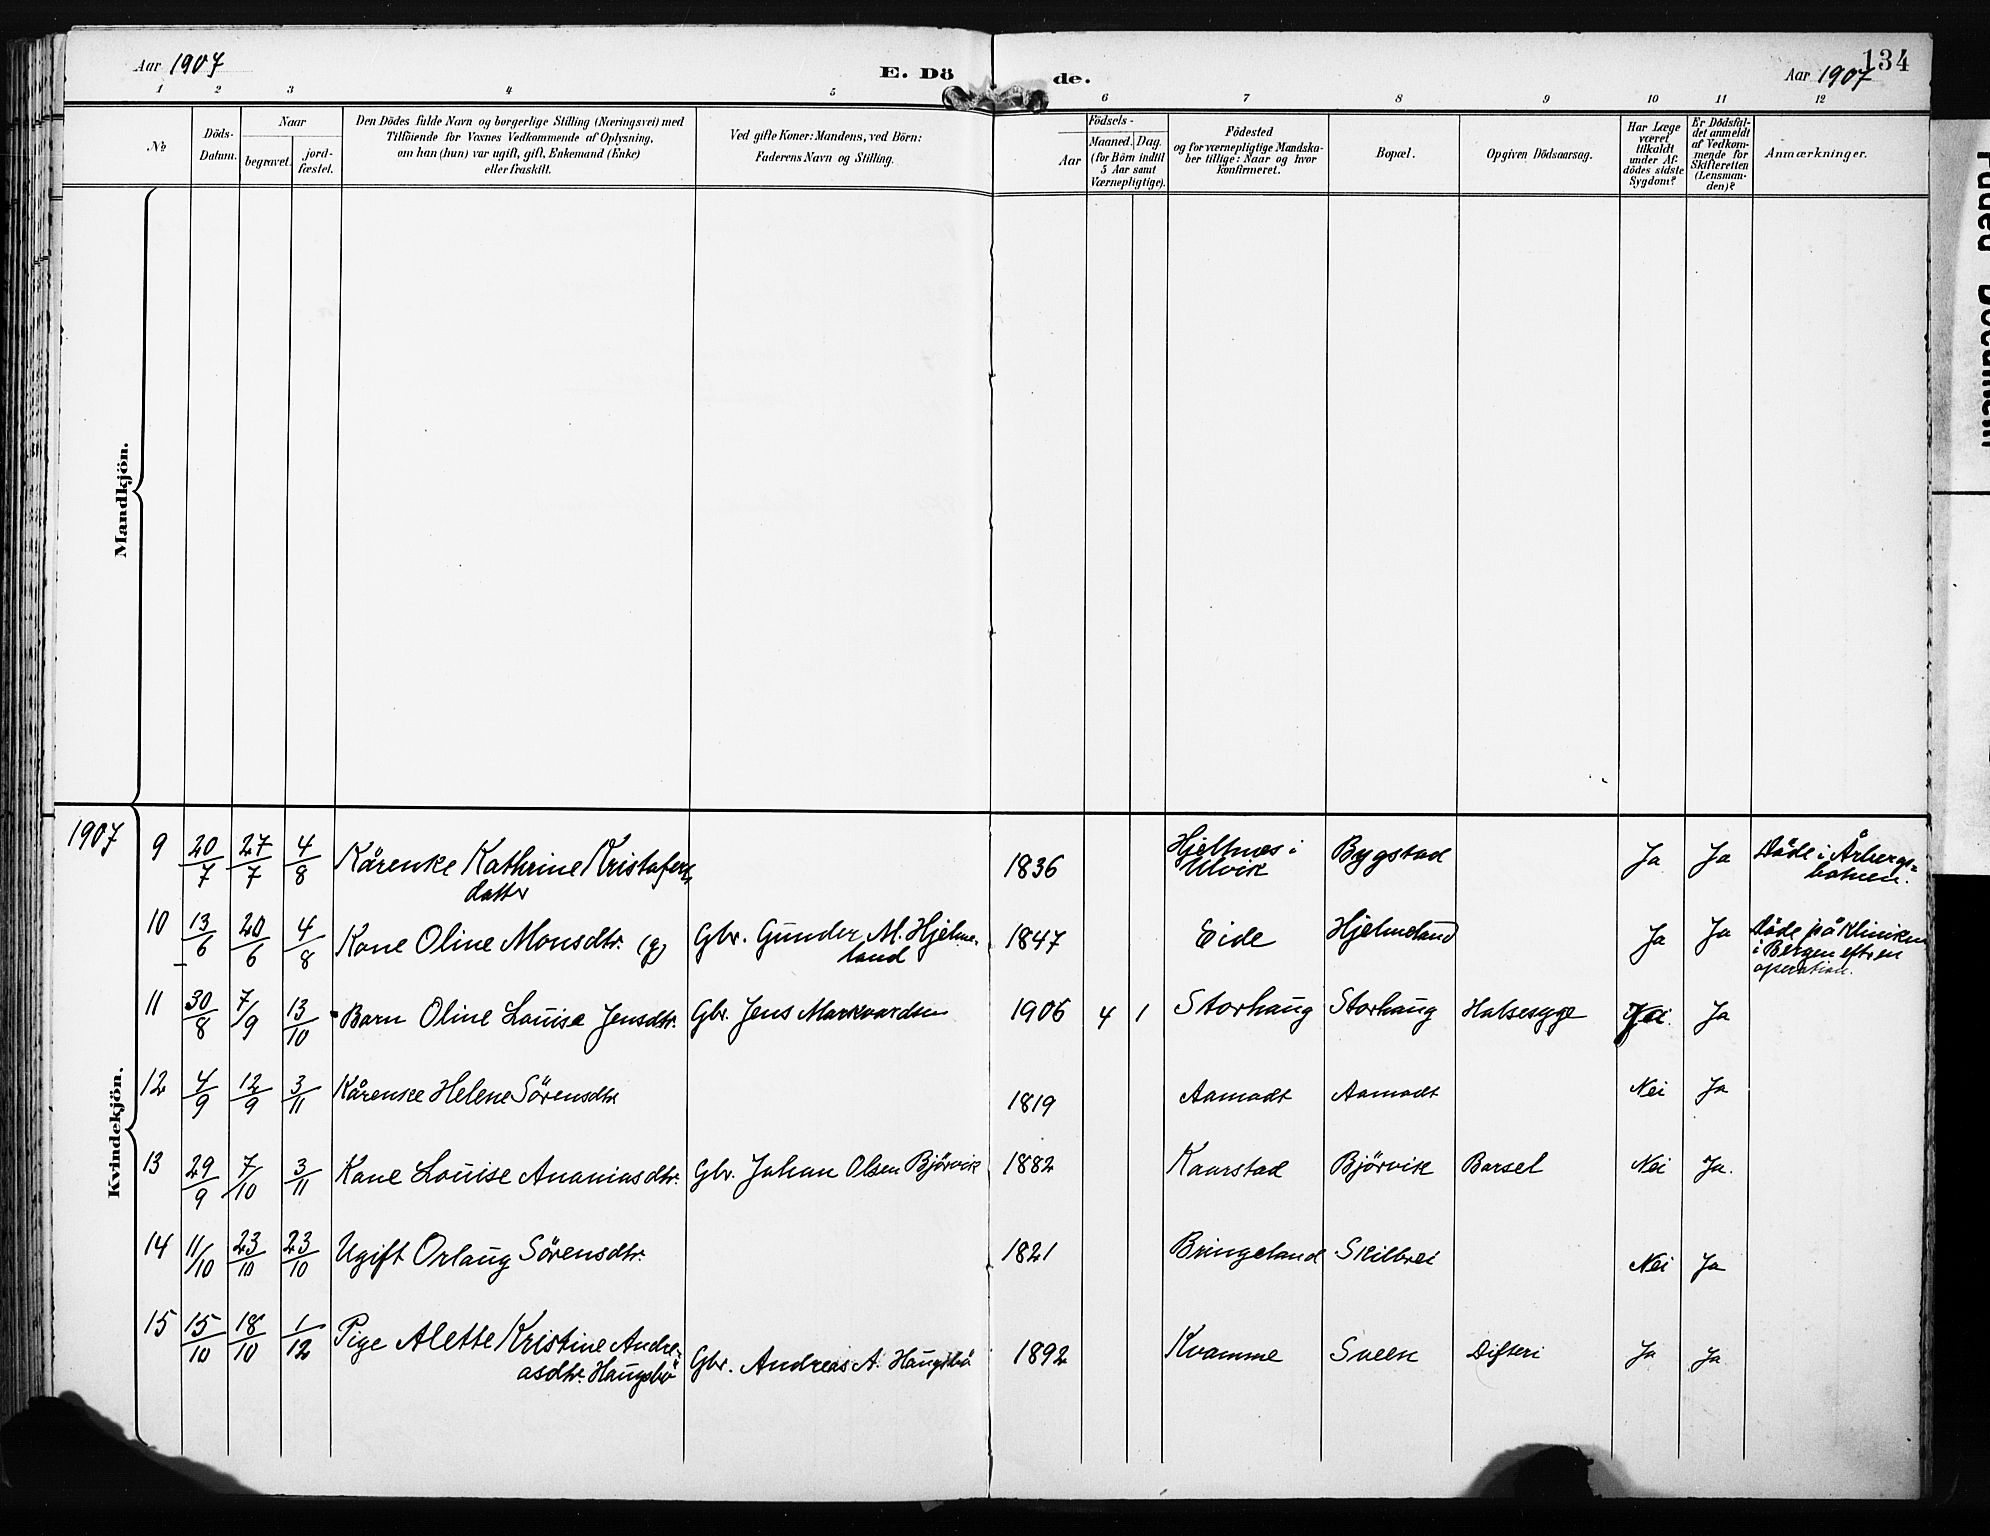 Aar 1907
E. Döde.
Aar 1907
134
1 2 3 4 5 6 7 8 9 10 11 12
№
Döds-Datum.
Naar
begravet.
jord-fæstet.
Den Dödes fulde Navn og borgerlige Stilling (Næringsvei) med
Tilföiende for Voxnes Vedkommende af Oplysning,
om han (hun) var ugift, gift, Enkemand (Enke)
eller fraskilt.
Ved gifte Koner: Mandens, ved Börn:
Faderens Navn og Stilling.
Födsels-
Aar
Maaned. Dag.
(for Börn indtil
5 Aar samt
Værnepligtige).
Födested
og for værnepligtige Mandska-
ber tillige: Naar og hvor
konfirmeret.
Bopæl.
Opgiven Dödsaarsag.
Har Læge
været
tilkaldt
under Af-
dödes sidste
Sygdom?
Er Dödsfal-
det anmeldt
af Vedkom-
mende for
Skifteretten
(Lensman-
den)?
Anmærkninger.
Mandkjön.
Kvindekjön.
1907
9 20/7 27/7 4/8 Kårenke Kathrine Kristofers datter 1836 Hjeltnes i Ulvik Bygstad Ja Ja Döde i Årbergs-botnen.
10 13/6 20/6 4/8 Kone Oline Monsdtr. (g) Gbr. Gunder M. Hjelme-land 1847 Eide Hjelmeland Ja Ja Döde på Kliniken i Bergen eft. en operation.
11 30/8 7/9 13/10 Barn Oline Louise Jensdtr. Gbr. Jens Markvardsen 1906 4 1 Storhaug Storhaug Halsesyge Ja
12 4/9 12/9 3/11 Kårenke Helene Sörensdtr 1819 Aamodt Aamodt Nei Ja
13 29/9 7/10 3/11 Kone Louise Ananiasdtr. Gbr. Johan Olsen Björvik 1882 Kaarstad Björvik Barsel Nei Ja.
14 11/10 23/10 23/10 Ugift Orlaug Sörensdtr. 1821 Bringeland Skilbrei Nei Ja
15 15/10 18/10 1/12 Pige Alette Kristine Andre-asdtr. Haugsbö Gbr. Andreas A. Haugsbö 1892 Kvamme Sveen Difteri Ja Ja